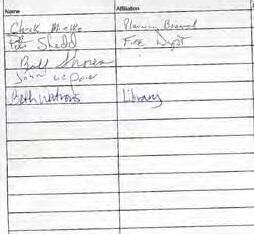 Name Affiliation
Chuck Planning Board
Pete Shedd Fire Dept
Bill Shores
John
Beth Watrous Library